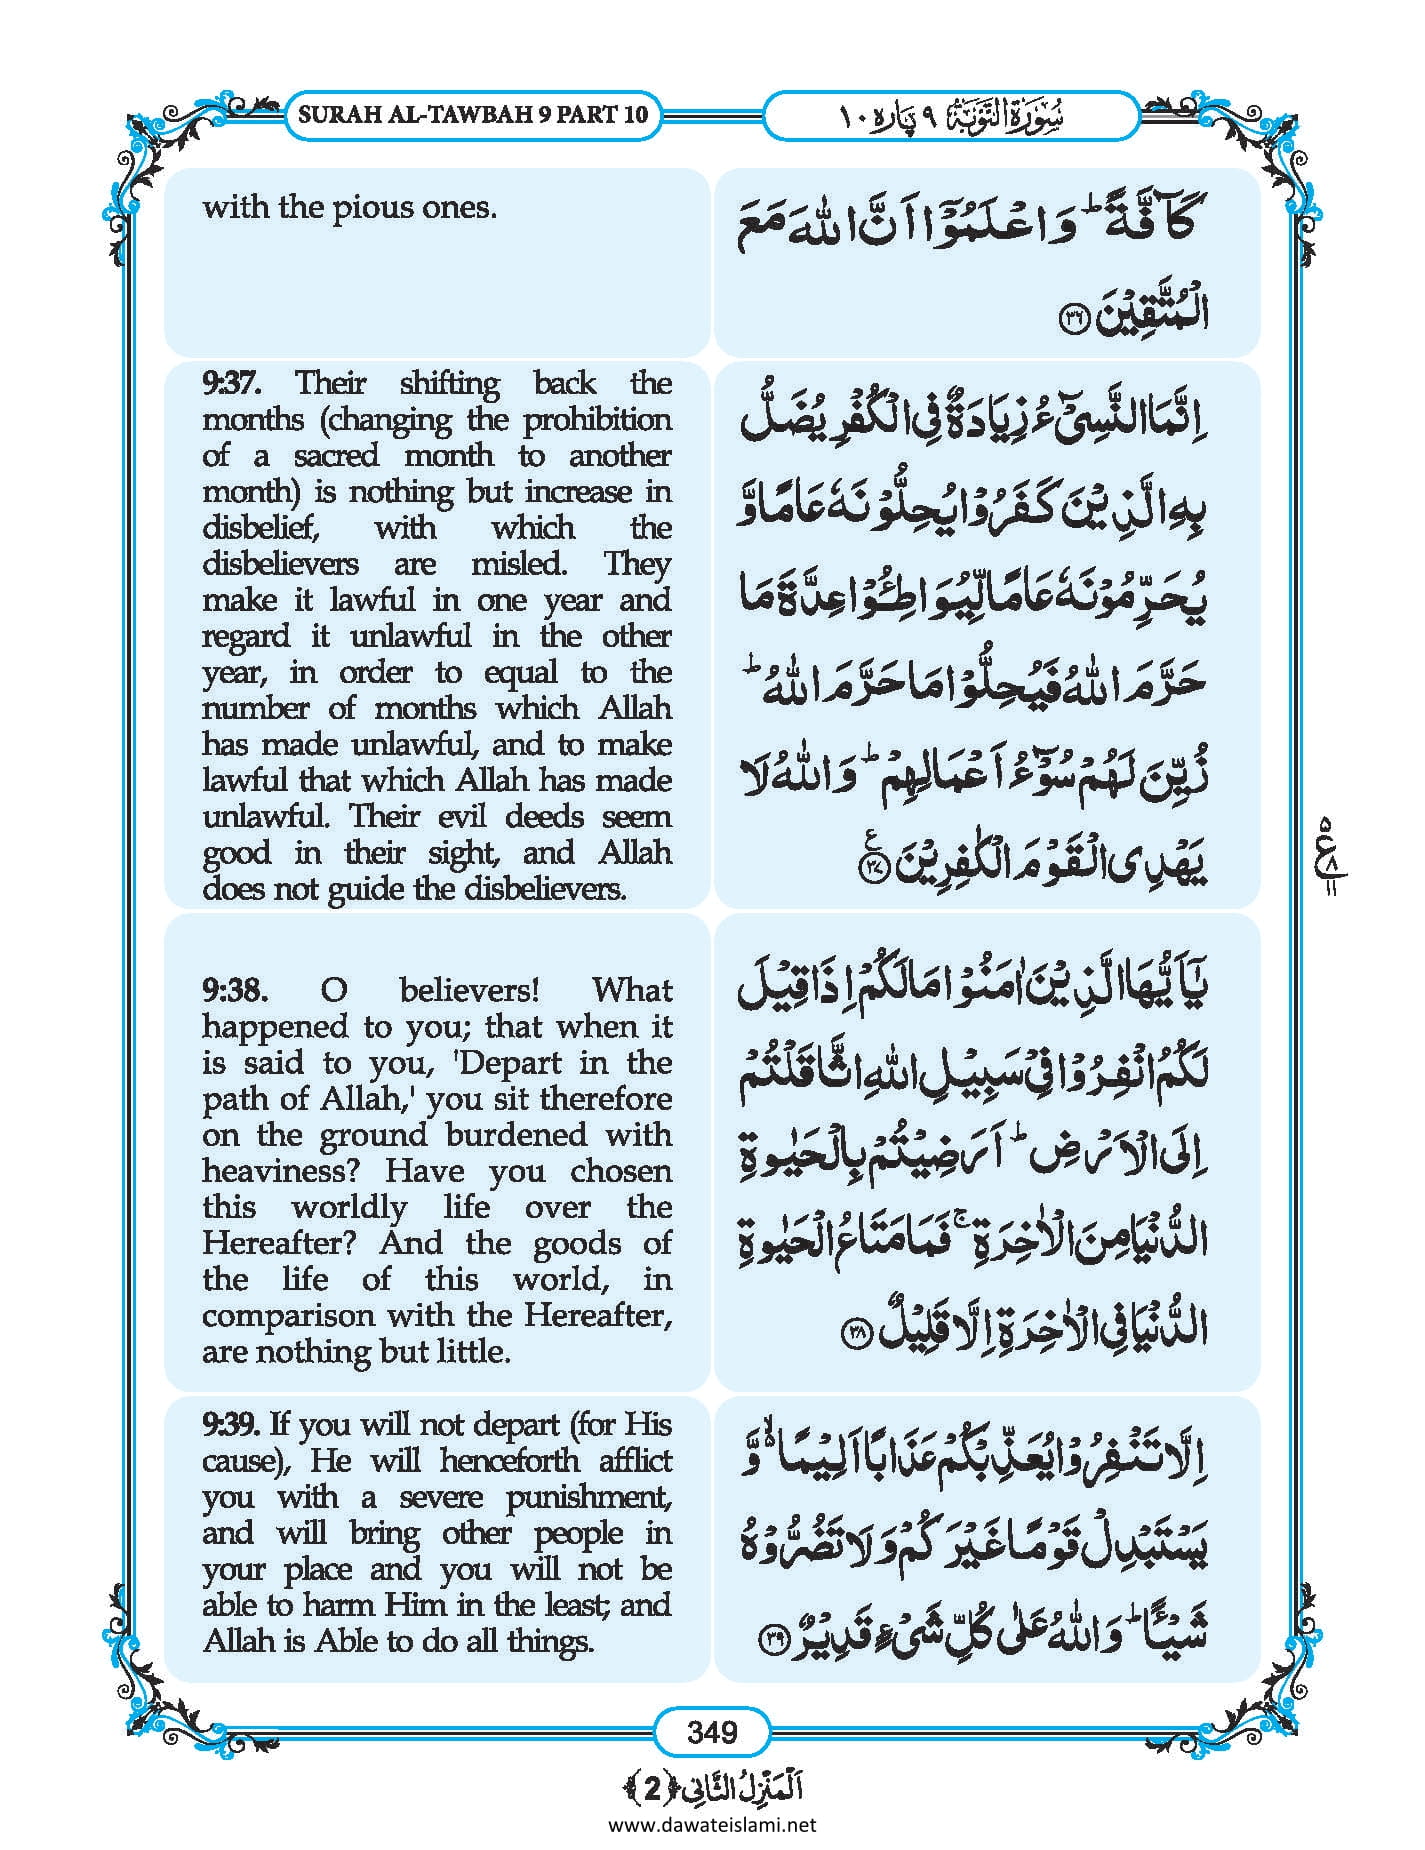 SURAH AL-TAWBAH 9 PART 10
سُوۡرَۃُ التَّوۡبَۃِ ۹ پارہ ۱۰
with the pious ones.
کَآفَّۃً ؕ وَاعۡلَمُوۡۤا اَنَّ اللّٰہَ مَعَ
الۡمُتَّقِیۡنَ ﴿۳۶﴾
9:37. Their shifting back the
months (changing the prohibition
of a sacred month to another
month) is nothing but increase in
disbelief, with which the
disbelievers are misled. They
make it lawful in one year and
regard it unlawful in the other
year, in order to equal to the
number of months which Allah
has made unlawful, and to make
lawful that which Allah has made
unlawful. Their evil deeds seem
good in their sight, and Allah
does not guide the disbelievers.
اِنَّمَا النَّسِیۡٓءُ زِیَادَۃٌ فِی الۡکُفۡرِ یُضَلُّ
بِہِ الَّذِیۡنَ کَفَرُوۡا یُحِلُّوۡنَہٗ عَامًا وَّ
یُحَرِّمُوۡنَہٗ عَامًا لِّیُوَاطِـُٔوۡا عِدَّۃَ مَا
حَرَّمَ اللّٰہُ فَیُحِلُّوۡا مَا حَرَّمَ اللّٰہُ ؕ
زُیِّنَ لَہُمۡ سُوۡٓءُ اَعۡمَالِہِمۡ ؕ وَاللّٰہُ لَا
یَہۡدِی الۡقَوۡمَ الۡکٰفِرِیۡنَ ﴿۳۷﴾ ع
۵
ع ۸
۱۱
9:38. O believers! What
happened to you; that when it
is said to you, 'Depart in the
path of Allah,' you sit therefore
on the ground burdened with
heaviness? Have you chosen
this worldly life over the
Hereafter? And the goods of
the life of this world, in
comparison with the Hereafter,
are nothing but little.
یٰۤاَیُّہَا الَّذِیۡنَ اٰمَنُوۡا مَا لَکُمۡ اِذَا قِیۡلَ
لَکُمُ انۡفِرُوۡا فِیۡ سَبِیۡلِ اللّٰہِ اثَّاقَلۡتُمۡ
اِلَی الۡاَرۡضِ ؕ اَرَضِیۡتُمۡ بِالۡحَیٰوۃِ
الدُّنۡیَا مِنَ الۡاٰخِرَۃِ ۚ فَمَا مَتَاعُ الۡحَیٰوۃِ
الدُّنۡیَا فِی الۡاٰخِرَۃِ اِلَّا قَلِیۡلٌ ﴿۳۸﴾
9:39. If you will not depart (for His
cause), He will henceforth afflict
you with a severe punishment,
and will bring other people in
your place and you will not be
able to harm Him in the least; and
Allah is Able to do all things.
اِلَّا تَنۡفِرُوۡا یُعَذِّبۡکُمۡ عَذَابًا اَلِیۡمًا ۬ۙ وَّ
یَسۡتَبۡدِلۡ قَوۡمًا غَیۡرَکُمۡ وَلَا تَضُرُّوۡہُ
شَیۡـًٔا ؕ وَاللّٰہُ عَلٰی کُلِّ شَیۡءٍ قَدِیۡرٌ ﴿۳۹﴾
349
اَلۡمَنۡزِلُ الثَّانِی ﴿2﴾
www.dawateislami.net